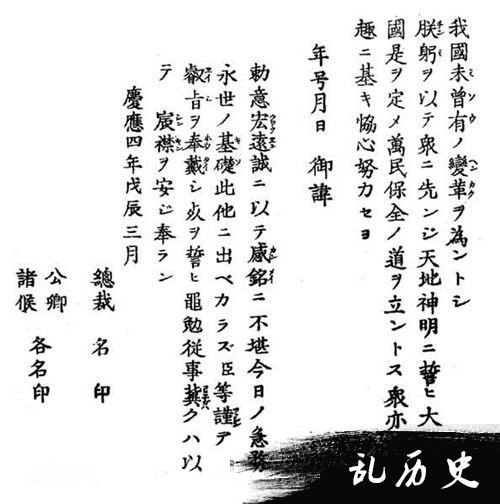 我國未曾有ノ變革ヲ為ントシ
朕躬ヲ以テ衆ニ先ンジ天地神明ニ誓ヒ大
國是ヲ定メ萬民保全ノ道ヲ立ントス衆亦
趣ニ基キ協心努力セヨ
年号月日 御諱
勅意宏遠誠ニ以テ感銘ニ不堪今日ノ急務
永世ノ基礎此他ニ出ベカラズ臣等謹テ
叡旨ヲ奉戴シ死ヲ誓ヒ黽勉従事冀クハ以
テ 宸襟ヲ安ジ奉ラン
慶應四年戊辰三月
總裁 名 印
公卿
諸侯 各名印
乱历史